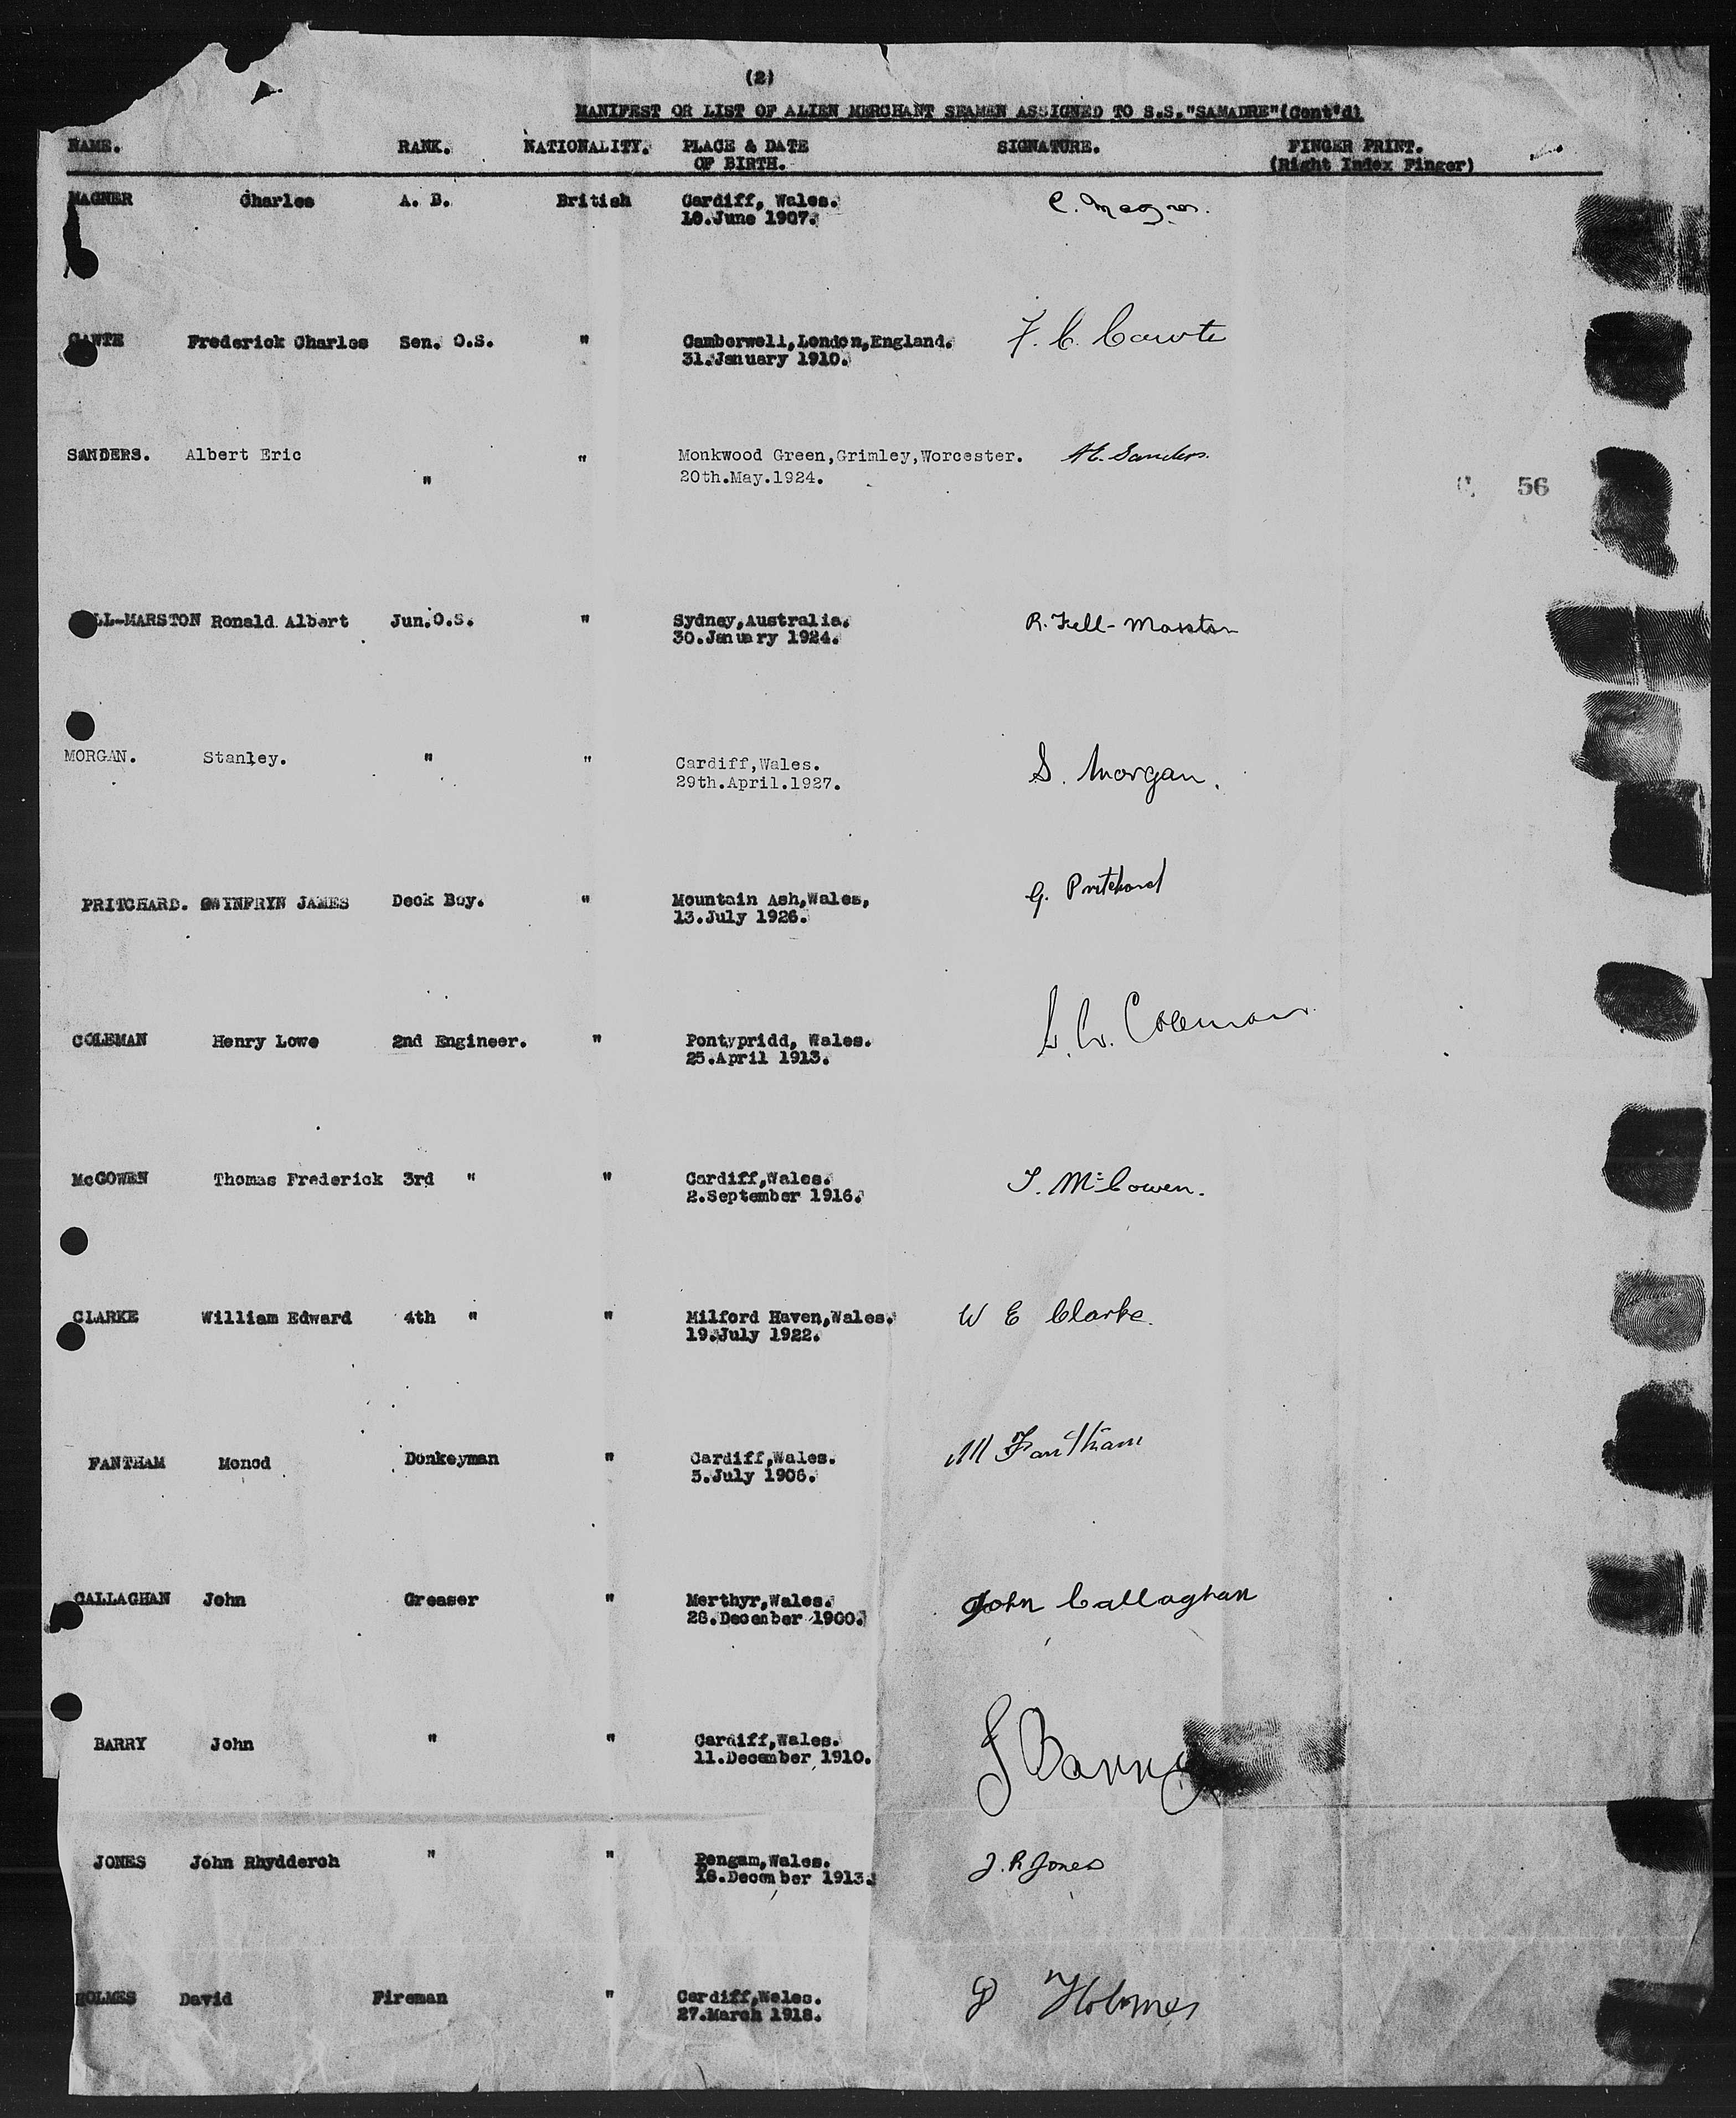 (2)
MANIFEST OR LIST OF ALIEN MERCHANT SEAMEN ASSIGNED TO S.S."SAMADRE"(Cont'd)
NAME. RANK. NATIONALITY. PLACE & DATE SIGNATURE. FINGER PRINT.
OF BIRTH. (Right Index Finger)
MAGNER Charles A. B. British Cardiff, Wales. C. Magner.
June 1907.
Frederick Charles Sen. O.S. " Camberwell,London,England. F. C. Cawte
31.January 1910.
SANDERS. Albert Eric " Monkwood Green,Grimley,Worcester. Sanders.
" 20th.May.1924.
LL-MARSTON Ronald Albert Jun.O.S. " Sydney,Australia. R. Fell-Marston
30.January 1924.
MORGAN. Stanley. " " Cardiff,Wales. S. Morgan.
29th.April.1927.
PRITCHARD. GWYNFRYN JAMES Deck Boy. " Mountain Ash,Wales, G. Pritchard
13.July 1926.
COLEMAN Henry Lowe 2nd Engineer. " Pontypridd, Wales. Coleman
25.April 1913.
McGOWEN Thomas Frederick 3rd " " Cardiff,Wales. T. McGowen.
2.September 1916.
CLARKE William Edward 4th " " Milford Haven,Wales. W E Clarke.
19.July 1922.
FANTHAM Monod Donkeyman " Cardiff,Wales. M Fantham
July 1906.
CALLAGHAN John Greaser " Merthyr,Wales. John Callaghan
December 1900.
BARRY John " " Cardiff,Wales. J Barry
11.December 1910.
JONES John Rhydderch " " Pengam,Wales. J. R Jones
December 1913.
HOLMES David Fireman " Cardiff,Wales. D Holmes
27.March 1918.
56